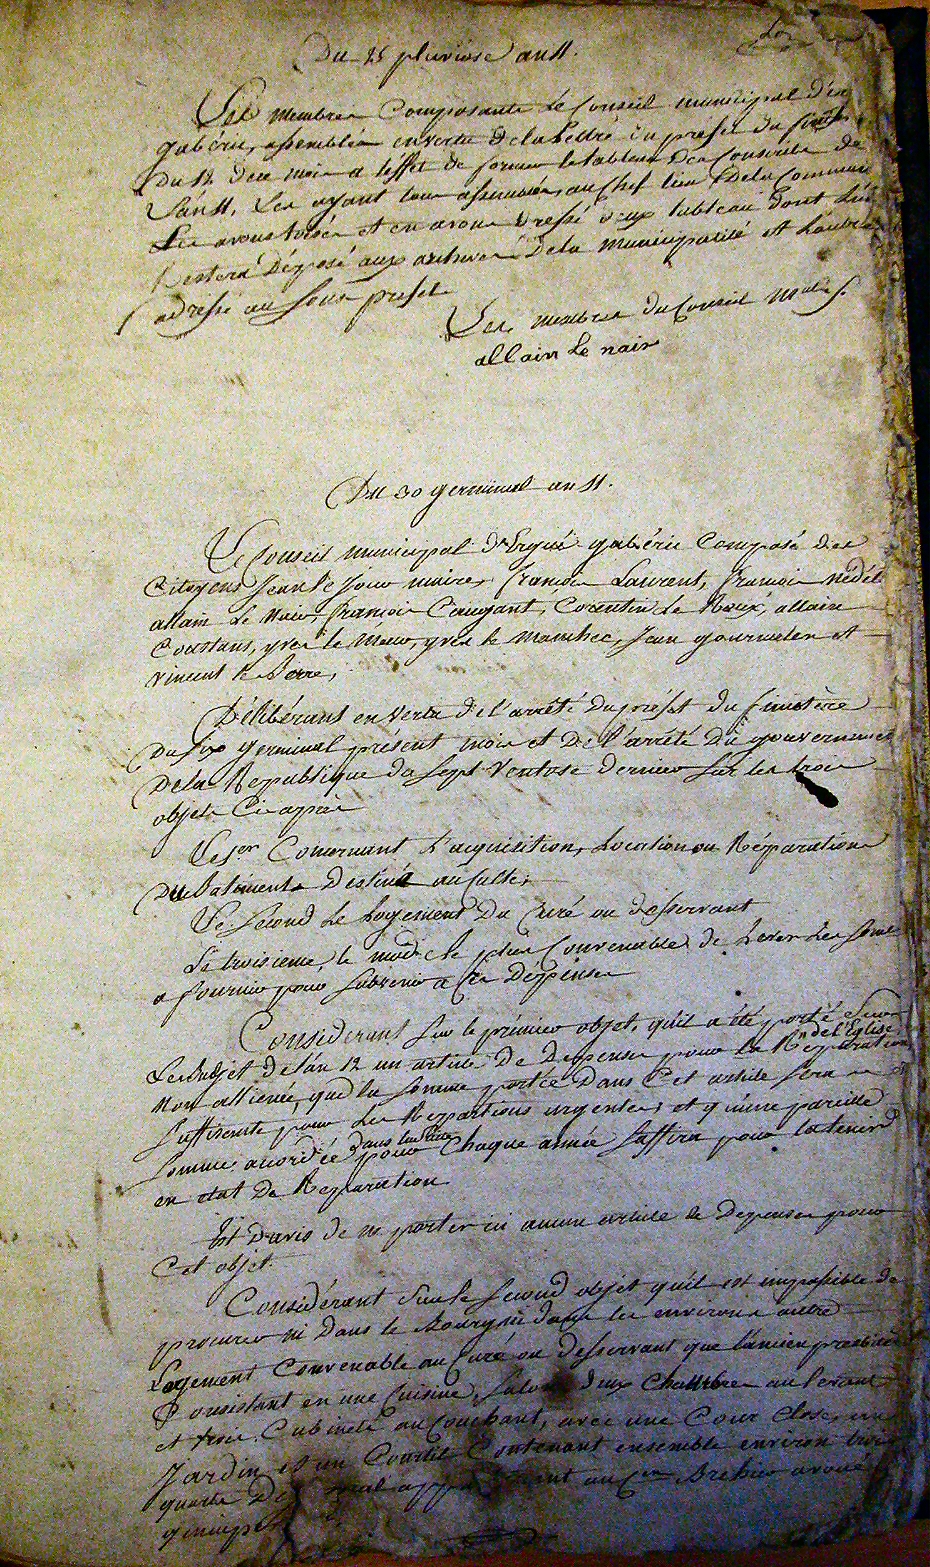 Du 25 pluviose an 11.
Les membres Composants le Conseil municipal d'Er
gabéric, assemblés en vertu de la lettre du préfet du finistère
du 12 de ce mois a l'effet de former le tableau des Conscrits de
l'an 11. Les ayant tous assemblés, au Chef lieu de la Commune
Les avons toisés et en avons dressé deux tableau dont l'un
restera déposé aux archives de la municipalité et l'autre
adressé au sous prefet
Les membres du Conseil
allain le nair
Du 30 germinal an 11.
Le Conseil municipal d'Ergué gabéric Composé des
Citoyens Jean le Jour maire, francois Laurent, francois nédél
allain le Nair, francois Caugant, Corentin le Roux, allain
Coustans, yves le Meur, yves le Manchec, Jean gourmelen et
vincent le Berre,
Délibérant en vertu de l'arrêté du préfet du finistère
du six germinal présent mois et de l'arrêté du gouvernement
de la République du sept Ventose dernier sur les trois
objets Ci après
Le 1er Concernant l'acquisition, Location ou Réparation
des batiments destinés au Culte,
Le second le Logement du Curé ou desservant
Le troisieme, le mode le plus Convenable de Lever les somes
a fournir pour subvenir a ces dépenses
Considerant sur le prémier objet, qu'il a été porté sur
Le Budjet de l'an 12 un article de depenses pour la Réparation de l'Eglise
non alliénée, que la somme portée dans Cet article sera
suffisante pour les Reparations urgentes, et q'une pareille
somme accordée dans la suite pour Chaque année suffira pour la tenir
en état de Réparation
Est d'avis de ne porter ici aucun article de depenses pour
Cet objet.
Considérant sur le second objet qu'il est impossible de
procurer ni dans le Bourg ni dans les environs autre
Logement Convenable au Curé ou desservant que l'ancien presbitère
Consistant en une Cuisine, salon, deux Chambres au levant
et trois Cabinets au Couchant, avec une Cour Close, un
Jardin et un Courtil Contenant ensemble environ trois
quarts de appartenant au Cen Brehier avoué